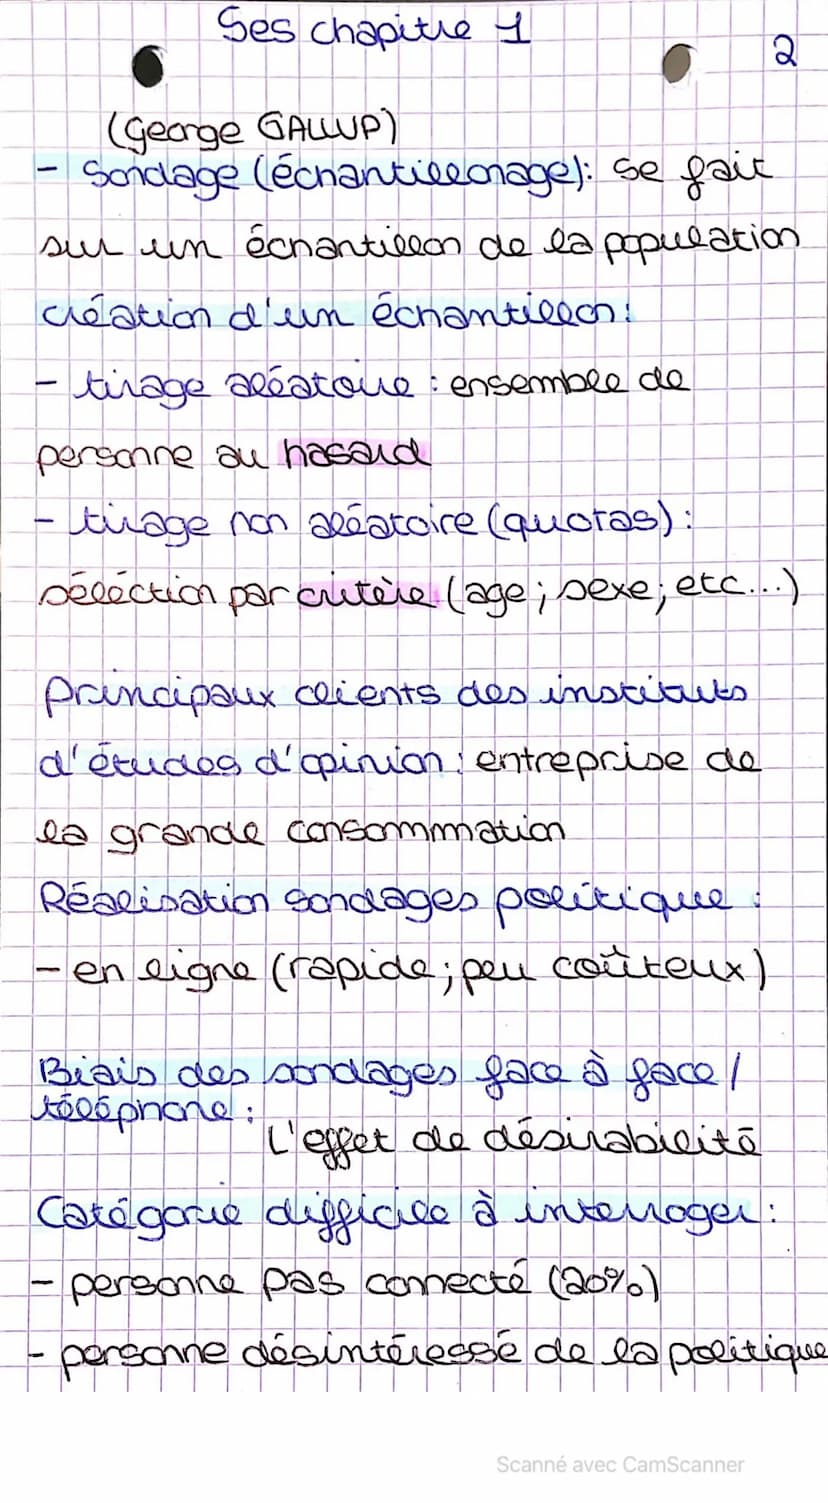 Ses chapitre 1
2
(George GALLUP)
- Sondage (échantillonage): se fait
sur un échantillon de la population
création d'un échantillon:
- tirage aléatoire : ensemble de
personne au hasard
- tirage non aléatoire (quotas) :
séléction par critère (age ; sexe ; etc...)
Principaux clients des instituts
d'études d'opinion : entreprise de
la grande consommmation
Réalisation sondages politique :
- en ligne (rapide ; peu coûteux)
Biais des sondages face à face /
téléphone :
L'effet de désirabilité
Catégorie difficile à interroger :
- personne pas connecté (20%)
- personne désintéressé de la politique
Scanné avec CamScanner